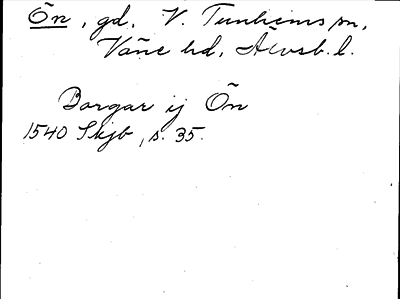 Ön, gd, V. Tunhems sn,
Väne hd, Älvsb. l.
Borgar ij Ön
1540 Skjb, s. 35.